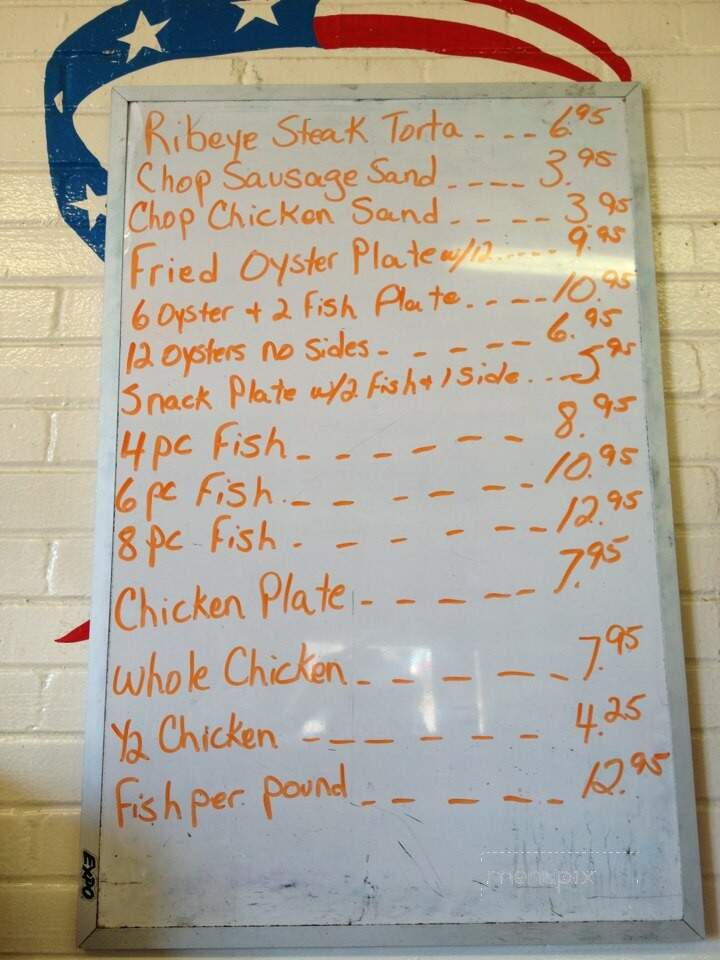 Ribeye Steak Torta - - - 6.95
Chop Sausage Sand - - - - 3.95
Chop Chicken Sand - - - - - 3.95
Fried Oyster Plate w/12 ..... - - 9.95
6 Oyster + 2 Fish Plate . . - - - 10.95
12 oysters no Sides - - - - - - 6.95
Snack Plate w/2 Fish + 1 Side . . - - 5.95
4 pc Fish - - - - - - - 8.95
6 pc Fish . - - - - - - - 10.95
8 pc Fish - - - - - - - 12.95
Chicken Plate - - - - - - 7.95
Whole Chicken - - - - - - 7.95
1/2 Chicken - - - - - - - 4.25
Fish per pound - - - - - - 12.95
EXPO
menupix